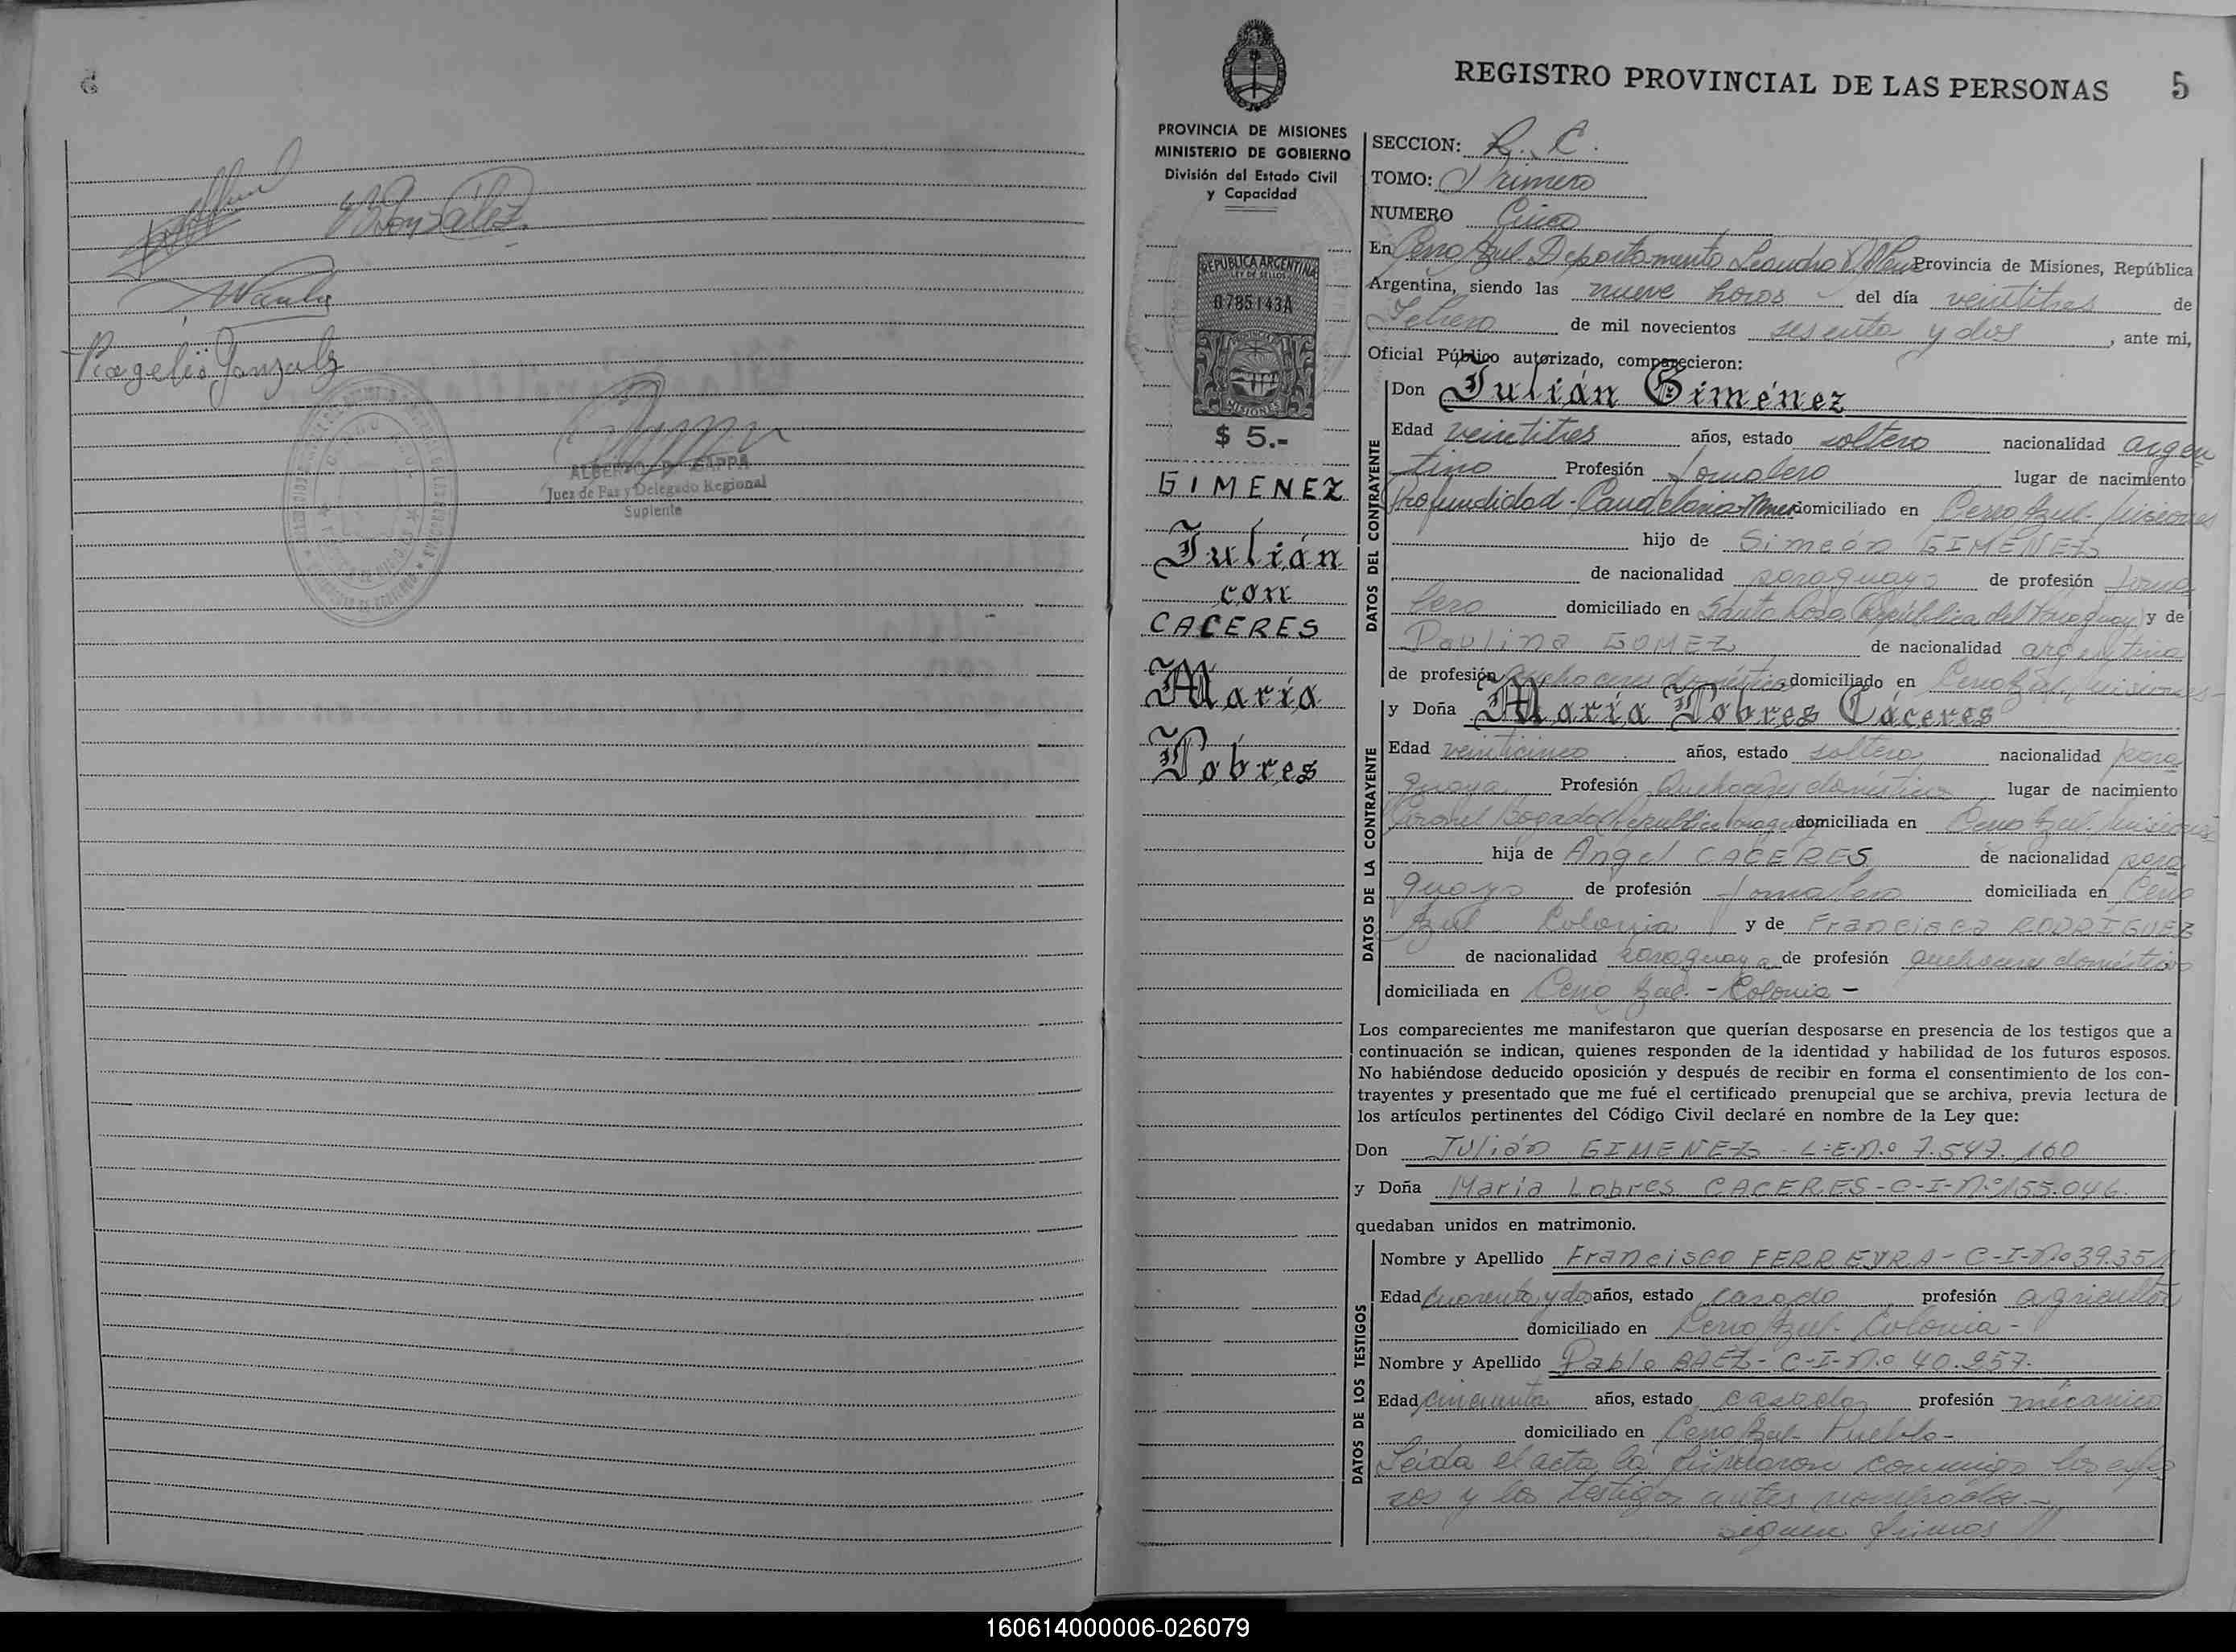 W Gonzalez.
Rogelio Gonzalez
ALBERTO
Juez de Paz y Delegado Regional
Suplente
REGISTRO PROVINCIAL DE LAS PERSONAS 5
PROVINCIA DE MISIONES
MINISTERIO DE GOBIERNO
División del Estado Civil
y Capacidad
REPUBLICA ARGENTINA
LEY DE SELLOS
0785143A
MISIONES
$ 5.-
GIMENEZ
Julián
con
CACERES
María
Lobres
SECCION: R. C.
TOMO: Primero
NUMERO Cinco
En Cerro Azul Departamento Leandro N. Alem Provincia de Misiones, República
Argentina, siendo las nueve horas - del día veintitres de
Febrero de mil novecientos sesenta y dos, ante mi,
Oficial Público autorizado, comparecieron:
DATOS DEL CONTRAYENTE
Don Julián Giménez
Edad veintitres años, estado soltero nacionalidad argen
tino Profesión Jornalero lugar de nacimiento
Profundidad - Candelaria domiciliado en Cerro Azul - Misiones
hijo de Simeón GIMENEZ
de nacionalidad paraguayo de profesión Jorna
lero domiciliado en Santa Rosa, República del Paraguay y de
Paulina GOMEZ de nacionalidad argentina
de profesión quehaceres domésticos domiciliado en Cerro Azul, Misiones-
DATOS DE LA CONTRAYENTE
y Doña María Lobres Cáceres
Edad veinticinco años, estado soltera nacionalidad para
guaya Profesión Quehaceres domésticos lugar de nacimiento
Coronel Bogado República Paraguay domiciliada en Cerro Azul. Misiones
hija de Angel CACERES de nacionalidad para
guayo de profesión Jornalero domiciliada en Cerro
Azul Colonia y de Francisca RODRIGUEZ
de nacionalidad paraguaya de profesión quehaceres domésticos
domiciliada en Cerro Azul. - Colonia -
Los comparecientes me manifestaron que querían desposarse en presencia de los testigos que a
continuación se indican, quienes responden de la identidad y habilidad de los futuros esposos.
No habiéndose deducido oposición y después de recibir en forma el consentimiento de los con-
trayentes y presentado que me fué el certificado prenupcial que se archiva, previa lectura de
los artículos pertinentes del Código Civil declaré en nombre de la Ley que:
Don Julián GIMENEZ - L-E-N.º 7.547.160
y Doña María Lobres CACERES - C-I-N.º 155.046.
quedaban unidos en matrimonio.
DATOS DE LOS TESTIGOS
Nombre y Apellido Francisco FERREYRA - C-I-Nº 39.351
Edad Cuarenta y dos años, estado casado profesión agricultor
domiciliado en Cerro Azul - Colonia -
Nombre y Apellido Pablo BAEZ - C-I-N.º 40.257.
Edad cincuenta años, estado casado profesión mecánico
domiciliado en Cerro Azul - Pueblo -
Leída el acta la firmaron conmigo los espo
sos y los testigos antes nombrados. -
siguen firmas //
160614000006-026079